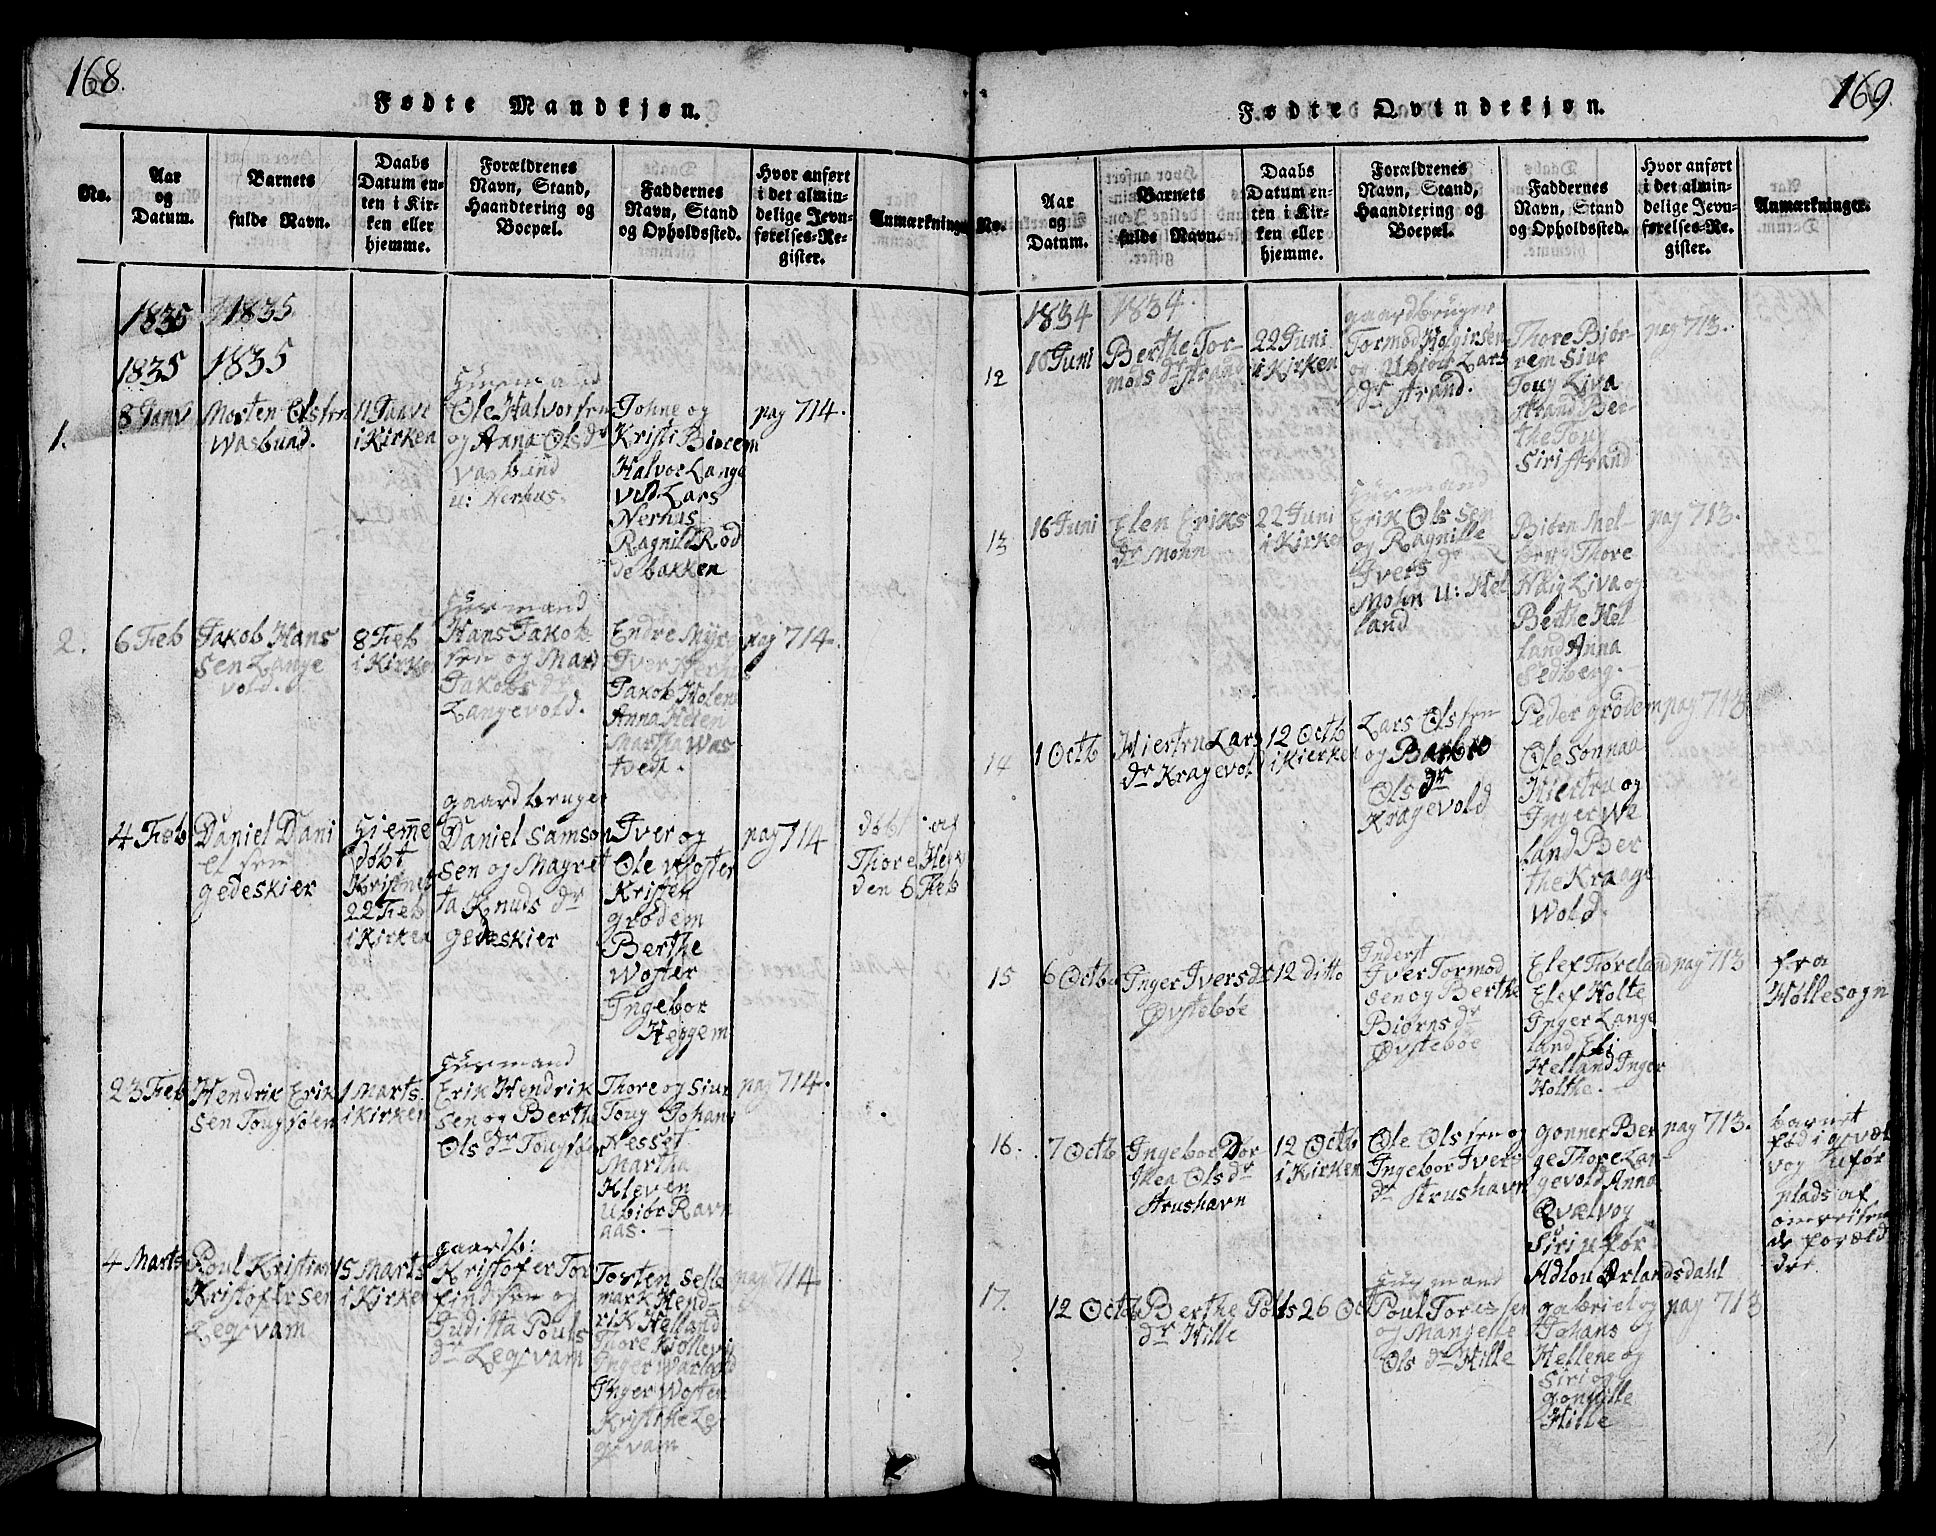 168.
Fødte Mandkjøn.
No.
Aar
og
Datum.
Barnets
fulde Navn.
Daabs
Datum en-
ten i Kir-
ken eller
hjemme.
Forældrenes
Navn, Stand,
Haandtering og
Boepæl.
Faddernes
Navn, Stand
og Opholdssted.
Hvor anført
i det almin-
delige Jevn-
førelses-Re-
gister.
Anmærkninger
1835
1835
1835
1835
1.
8 Janv
Morten Olsen
Wasbund.
11 Janv
i Kirken
Huusmand
Ole Halvorsen
og Anna Ols dr
Vasbund
u: Nerhus.
Johne og
Kristi Biorem
Halvor Lange
vold Lars
Nerhus
Ragnild Rød
debakken
pag 714.
2.
6 Feb
Jakob Hans
sen Lange
vold.
8 Feb
i Kirken
Huusmand
Hans Jakob
sen og Mari
Jakobs dr
Langevold.
Endre Myr
Iver
Jakob Holen
Anna Helen
Martha Was
tvedt.
pag 714.
4 Feb
Daniel Dani
elsen
gedeskier
Hjemme
døbt
Kristnet
22 Feb
i Kirken
gaardbruger
Daniel Samson
sen og Magret
ta Knuds dr
gedeskier
Iver og
Ole Woster
Kristen
grødem
Berthe
Woster
Ingebor
Heggem
pag 714
døbt af
Thore
den 6 Feb
23 Feb
Hendrik Erik
sen Tougsøen
1 Marts
i Kirken
Huusmand
Erik Hendrik
sen og Berthe
Ols dr Tougsøen
Thore og Siur
Toug Johans
Nesset
Martha
Kleven
Ubiør Ravn
aas.
pag 714.
4 Marts
Poul Kristian
Kristofersen
Legvam
15 Marts
i Kirken
gaardb:
Kristofer Tor
findsen og
Juditta Pouls
dr Legvam
Torsten Selle
mark Hend-
rik Helland
Thore
Inger
Inger Woster
Kristine Le
gvam
pag 714
169.
Fødte Qvindekjøn.
No.
Aar
og
Datum.
Barnets
fulde Navn.
Daabs
Datum en-
ten i Kir-
ken eller
hjemme.
Forældrenes
Navn, Stand,
Haandtering og
Boepæl.
Faddernes
Navn, Stand
og Opholdssted.
Hvor anført
i det almin-
delige Jevn-
førelses-Re-
gister.
Anmærkninger.
1834
1834.
12
10 Juni
Berthe Tor-
mods dr Strand
22 Juni
i Kirken
gaardbruger
Tormod Holgirsen
og Ubiør Lars
dr Strand.
Thore Biør-
rem Siur
Toug Liva
Strand Ber-
the Toug
Siri Strand
pag 713.
13
16 Juni
Elen Eriks
dr Mohn
22 Juni
i Kirken
Huusmand
Erik Olssen
og Ragnille
Ivers dr
Mohn u: Hel
land
Thore
Haig Liva og
Berthe Hel
land Anna
Sedberg.
pag 713.
14
1 Octb
Kiersten Lars
dr Kragevold
12 Octb
i Kirken
Lars Olssen
og Barbro
Ols dr
Kragevold
Peder grødem
Ole Sønnaa
og
Inger We
land Ber
the Kraage
Wold.
pag 713
15
6 Octb
Inger Ivers dr
Øvstebøe
12 ditto
Inderst
Iver Tormod
sen og Berthe
Biørns dr
Øvstebøe
Elef Foreland
Elef Holte
Inger Lange
land Eli
Helland Inger
Holthe.
pag 713
fra
Høllesogn
16.
7 Octb
Ingebor Dor
thea Ols dr
Strushavn
12 Octb
i Kirken
Ole Olssen og
Ingebor Ivers
dr Strushavn
Gonner Ber
ge Thore Lan-
gevold Anna
Qvælvog
Siri ufør
Adlou Ørlandsdahl
pag 713.
barnet
fød i qvæl
vog ufør
plads af
omreisen
de foræld
dre.
17.
12 Octb
Berthe Pøls
dr Hille
26 Oct
Huusmand
Poul Toressen
og Mangelle
Ols dr Hille
gabriel og
Johans
Hellene og
Siri og
gonnille
Hille
pag 713